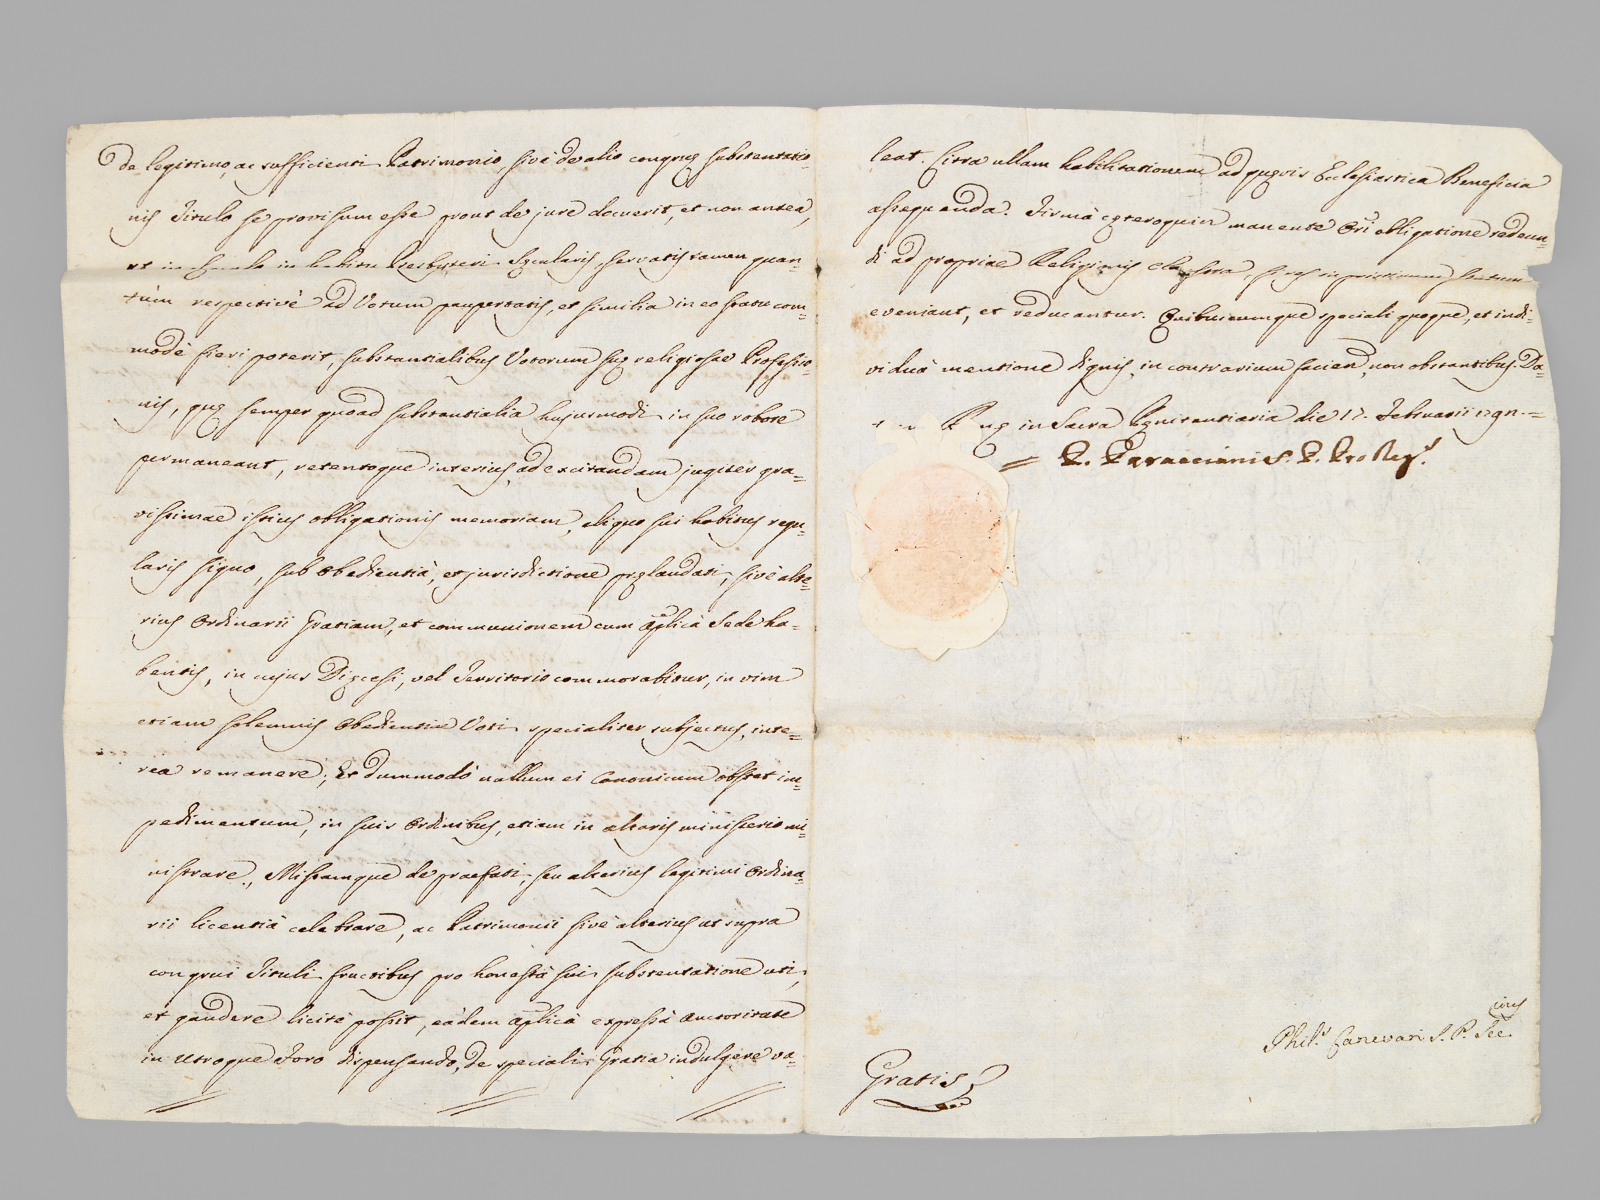 de legitimo, ac sufficienti Patrimonio, sivè de alio congruę substentatio=
nis Titulo se provisum esse prout de jure docuerit, et non antea,
in habitu Presbyteri Sęcularis, servatis tamen quan=
tùm respectivè ad Votum paupertatis, et similia in eo statu com=
modè fieri poterit, substantialibus Votorum suę religiosae Professio=
nis, quę semper quoad substantialia hujusmodi in suo robore
permaneant, retentoque interius, ad excitandam jugiter gra=
vissimae istius obligationis memoriam, aliquo sui habitus regu=
laris signo, sub obedientià, et jurisdictione pręlaudati, sivè alte=
rius Ordinarii Gratiam, et communionem cum Aplicà Sede ha=
bentis, in cujus Dięcesi, vel Territorio commorabitur, in vim
etiam solemnis Obedientiae Voti specialiter subjectus, inte=
rea remanere; Et dummodò nullum ei Canonicum obstet im=
pedimentum, in suis Ordinibus, etiam in altaris ministerio mi=
nistrare, Missamque de praefati, seu alterius legitimi Ordina=
rii licentià celebrare, ac Patrimonii sivè alterius ut supra
congrui Tituli fructibus pro honestà sui substentatione uti,
et gaudere licitè possit, eàdem Aplicà expressà auctoritate
in utroque Foro dispensando, de speciali Gratia indulgere va=
leat. Citra ullam habilitationem ad quęvis Ecclesiastica Beneficia
assequenda. Firmà cęteroquin manente Ori obligatione redeun=
di ad propriae Religionis Claustra, si res in pristinum statum
eveniant, et reducantur. Quibuscumque speciali quoque, et indi=
viduà mentione dignis, in contrarium facien, non obstantibus. Da=
in Sacra Pęnitentiaria die 17. Februarii
= P. Paracciani S. P. Pro Reg.
Phil.s Canevari S. P. Sec.rius
Gratis